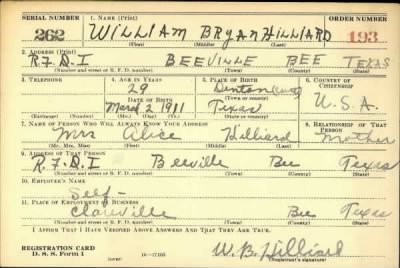 SERIAL NUMBER 1. NAME (Print) ORDER NUMBER
262 WILLIAM BRYAN HILLIARD 193
(First) (Middle) (Last)
2. ADDRESS (Print)
R.F.D. I BEEVILLE BEE TEXAS
(Number and street or R. F. D. number) (Town) (County) (State)
3. TELEPHONE 4. AGE IN YEARS 5. PLACE OF BIRTH 6. COUNTRY OF CITIZENSHIP
29 Denton County
DATE OF BIRTH (Town or county)
March 2 1911 Texas U.S.A.
(Exchange) (Number) (Mo.) (Day) (Yr.) (State or country)
7. NAME OF PERSON WHO WILL ALWAYS KNOW YOUR ADDRESS 8. RELATIONSHIP OF THAT PERSON
Mrs Alice Hilliard Mother
(Mr., Mrs., Miss) (First) (Middle) (Last)
9. ADDRESS OF THAT PERSON
R.F.D. I Beeville Bee Texas
(Number and street or R. F. D. number) (Town) (County) (State)
10. EMPLOYER'S NAME
Self-
11. PLACE OF EMPLOYMENT OR BUSINESS
Clareville Bee Texas
(Number and street or R. F. D. number) (Town) (County) (State)
I AFFIRM THAT I HAVE VERIFIED ABOVE ANSWERS AND THAT THEY ARE TRUE.
REGISTRATION CARD
D. S. S. Form 1 16-17105 W. B. Hilliard
(Registrant's signature)